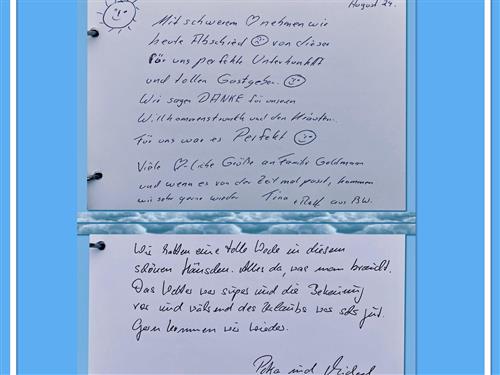 August 24.
Mit schwerem ♡ nehmen wir
heute Abschied ☺ von dieser
für uns perfekte Unterkunft
und tollen Gastgeber. ☺
Wir sagen DANKE für unseren
Willkommenstrunk und den Kräutern.
Für uns war es Perfekt ☺
Viele ♡-liche Grüße an Familie Goldmann
und wenn es von der Zeit mal passt, kommen
wir sehr gerne wieder Tina + Ralf aus BW.
Wir hatten eine tolle Woche in diesem
schönen Häuschen. Alles da, was man braucht.
Das Wetter war super und die Betreuung
vor und während des Urlaubs war sehr gut.
Gern kommen wir wieder.
Petra und Michael